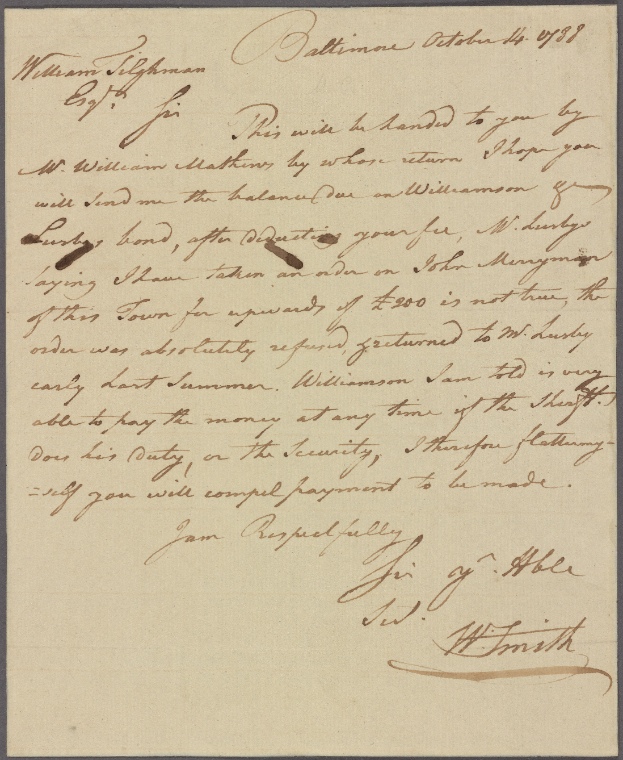 Baltimore October 14. 1788
William Tilghman
Esqr. Sir
This will be handed to you by
Mr. William Mathews by whose return I hope you
will send me the balance due on Williamson &
Lusbys bond, after deducting your fee, Mr. Lusbys
saying I have taken an order on John Merryman
of this Town for upwards of £200 is not true, the
order was absolutely refused, & returned to Mr. Lusby
early Last Summer. Williamson I am told is very
able to pay the money at any time if the Sheriff
does his duty, or the Security, I therefore flatter my-
=self you will compel payment to be made.
I am Respectfully
Sir yr. Hble
Sert.
W. Smith